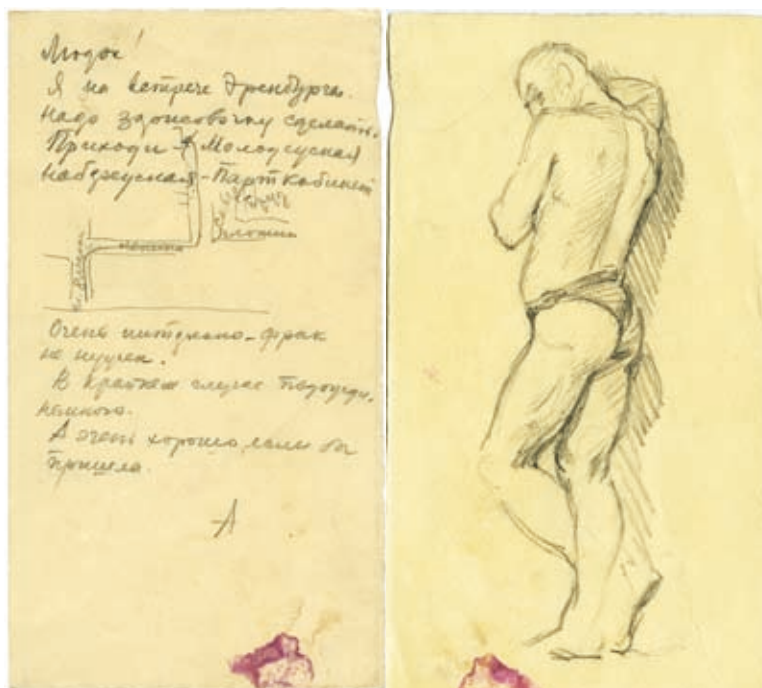 Людок!
Я на встрече Эренбурга.
Надо зарисовочку сделать.
Приходи - Молодежная
набережная - Парткабинет
Ленина
Очень интимно - фрак
не нужен.
В крайнем случае подожди
немного.
А очень хорошо, если бы
пришла.
А